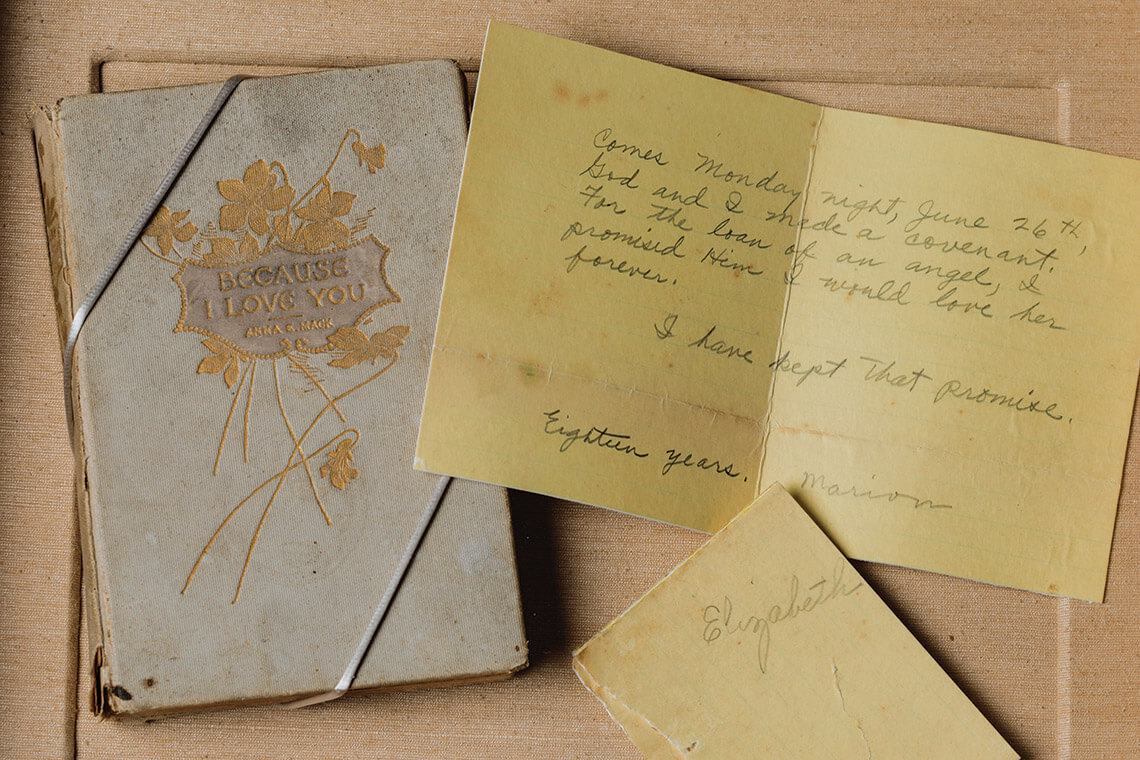 BECAUSE
I LOVE YOU
ANNA E. MACK
Comes Monday night, June 26th,
God and I made a covenant.
For the loan of an angel, I
promised Him I would love her
forever.
I have kept that promise.
Eighteen years.
Marion
Elizabeth